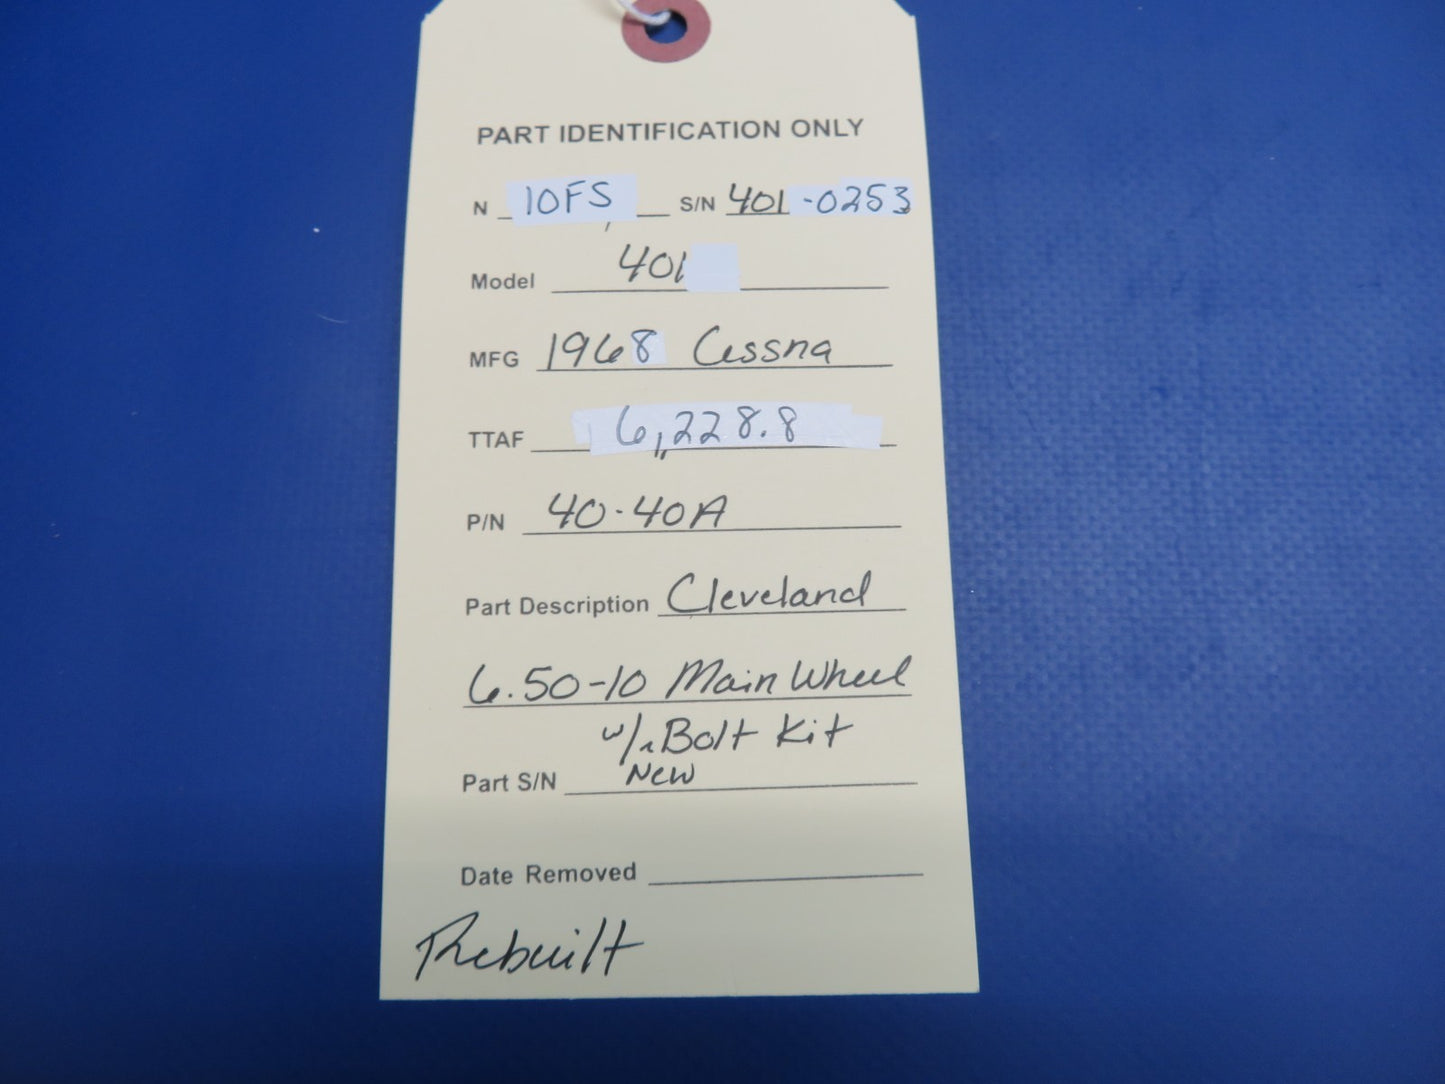 PART IDENTIFICATION ONLY
N 10FS S/N 401-0253
Model 401
MFG 1968 Cessna
TTAF 6,228.8
P/N 40-40A
Part Description Cleveland
6.50-10 Main Wheel
w/ Bolt Kit
Part S/N New
Date Removed
Rebuilt